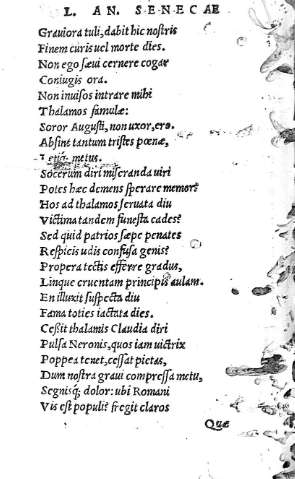 L. AN. SENECAE
Grauiora tuli, dabit hic nostris
Finem curis uel morte dies.
Non ego sæui cernere cogar
Coniugis ora.
Non inuisos intrare mihi
Thalamos famulæ:
Soror Augusti, non uxor, ero.
Absint tantum tristes pœnæ,
metus.
Scelerum diri miseranda uiri
Potes hæc demens sperare memor?
Hos ad thalamos seruata diu
Victima tandem funesta cades?
Sed quid patrios sæpe penates
Respicis udis confusa genis?
Propera tectis efferre gradus,
Linque cruentam principis aulam.
En illuxit suspecta diu
Fama toties iactata dies.
Ceßit thalamis Claudia diri
Pulsa Neronis, quos iam uictrix
Poppea tenet, ceßat pietas,
Dum nostra graui compressa metu,
Segnisq; dolor: ubi Romani
Vis est populi? fregit claros
Quæ